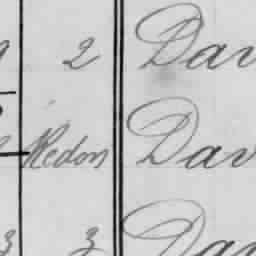 2 Dav
Redon Dav
3 3 Dav